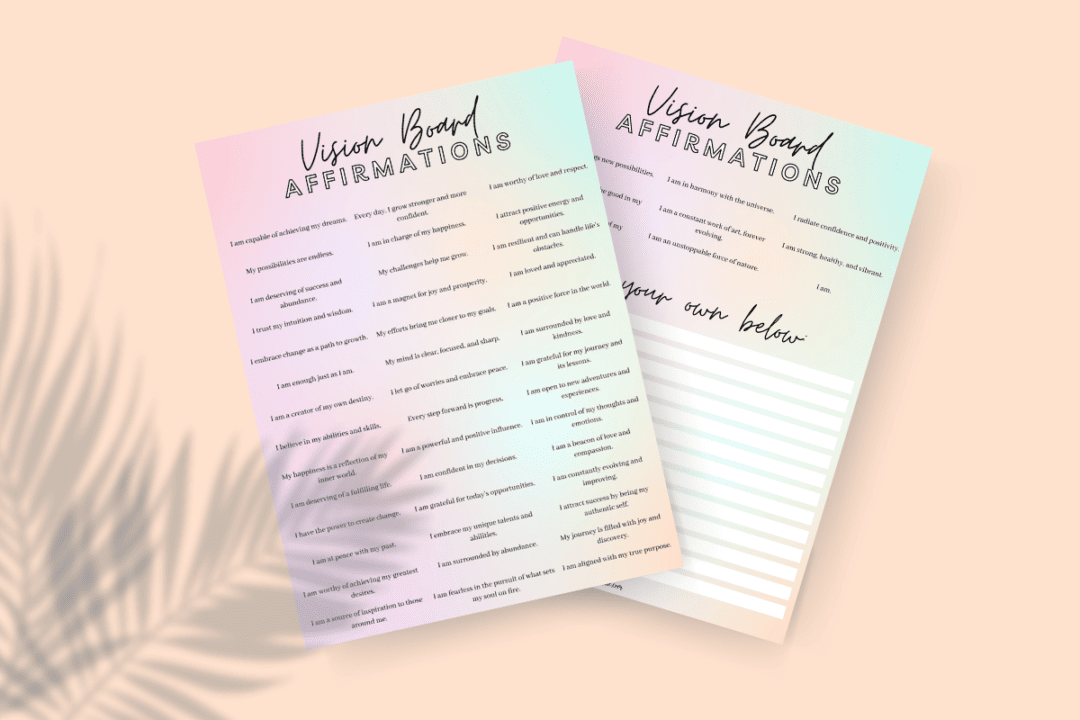 Vision Board
AFFIRMATIONS
I am capable of achieving my dreams.
My possibilities are endless.
I am deserving of success and
abundance.
I trust my intuition and wisdom.
I embrace change as a path to growth.
I am enough just as I am.
I am a creator of my own destiny.
I believe in my abilities and skills.
My happiness is a reflection of my
inner world.
I am deserving of a fulfilling life.
I have the power to create change.
I am at peace with my past.
I am worthy of achieving my greatest
desires.
I am a source of inspiration to those
around me.
Every day, I grow stronger and more
confident.
I am in charge of my happiness.
My challenges help me grow.
I am a magnet for joy and prosperity.
My efforts bring me closer to my goals.
My mind is clear, focused, and sharp.
I let go of worries and embrace peace.
Every step forward is progress.
I am a powerful and positive influence.
I am confident in my decisions.
I am grateful for today's opportunities.
I embrace my unique talents and
abilities.
I am surrounded by abundance.
I am fearless in the pursuit of what sets
my soul on fire.
I am worthy of love and respect.
I attract positive energy and
opportunities.
I am resilient and can handle life's
obstacles.
I am loved and appreciated.
I am a positive force in the world.
I am surrounded by love and
kindness.
I am grateful for my journey and
its lessons.
I am open to new adventures and
experiences.
I am in control of my thoughts and
emotions.
I am a beacon of love and
compassion.
I am constantly evolving and
improving.
I attract success by being my
authentic self.
My journey is filled with joy and
discovery.
I am aligned with my true purpose.
Vision Board
AFFIRMATIONS
new possibilities.
good in my
of my
I am in harmony with the universe.
I am a constant work of art, forever
evolving.
I am an unstoppable force of nature.
I radiate confidence and positivity.
I am strong, healthy, and vibrant.
I am.
your own below: